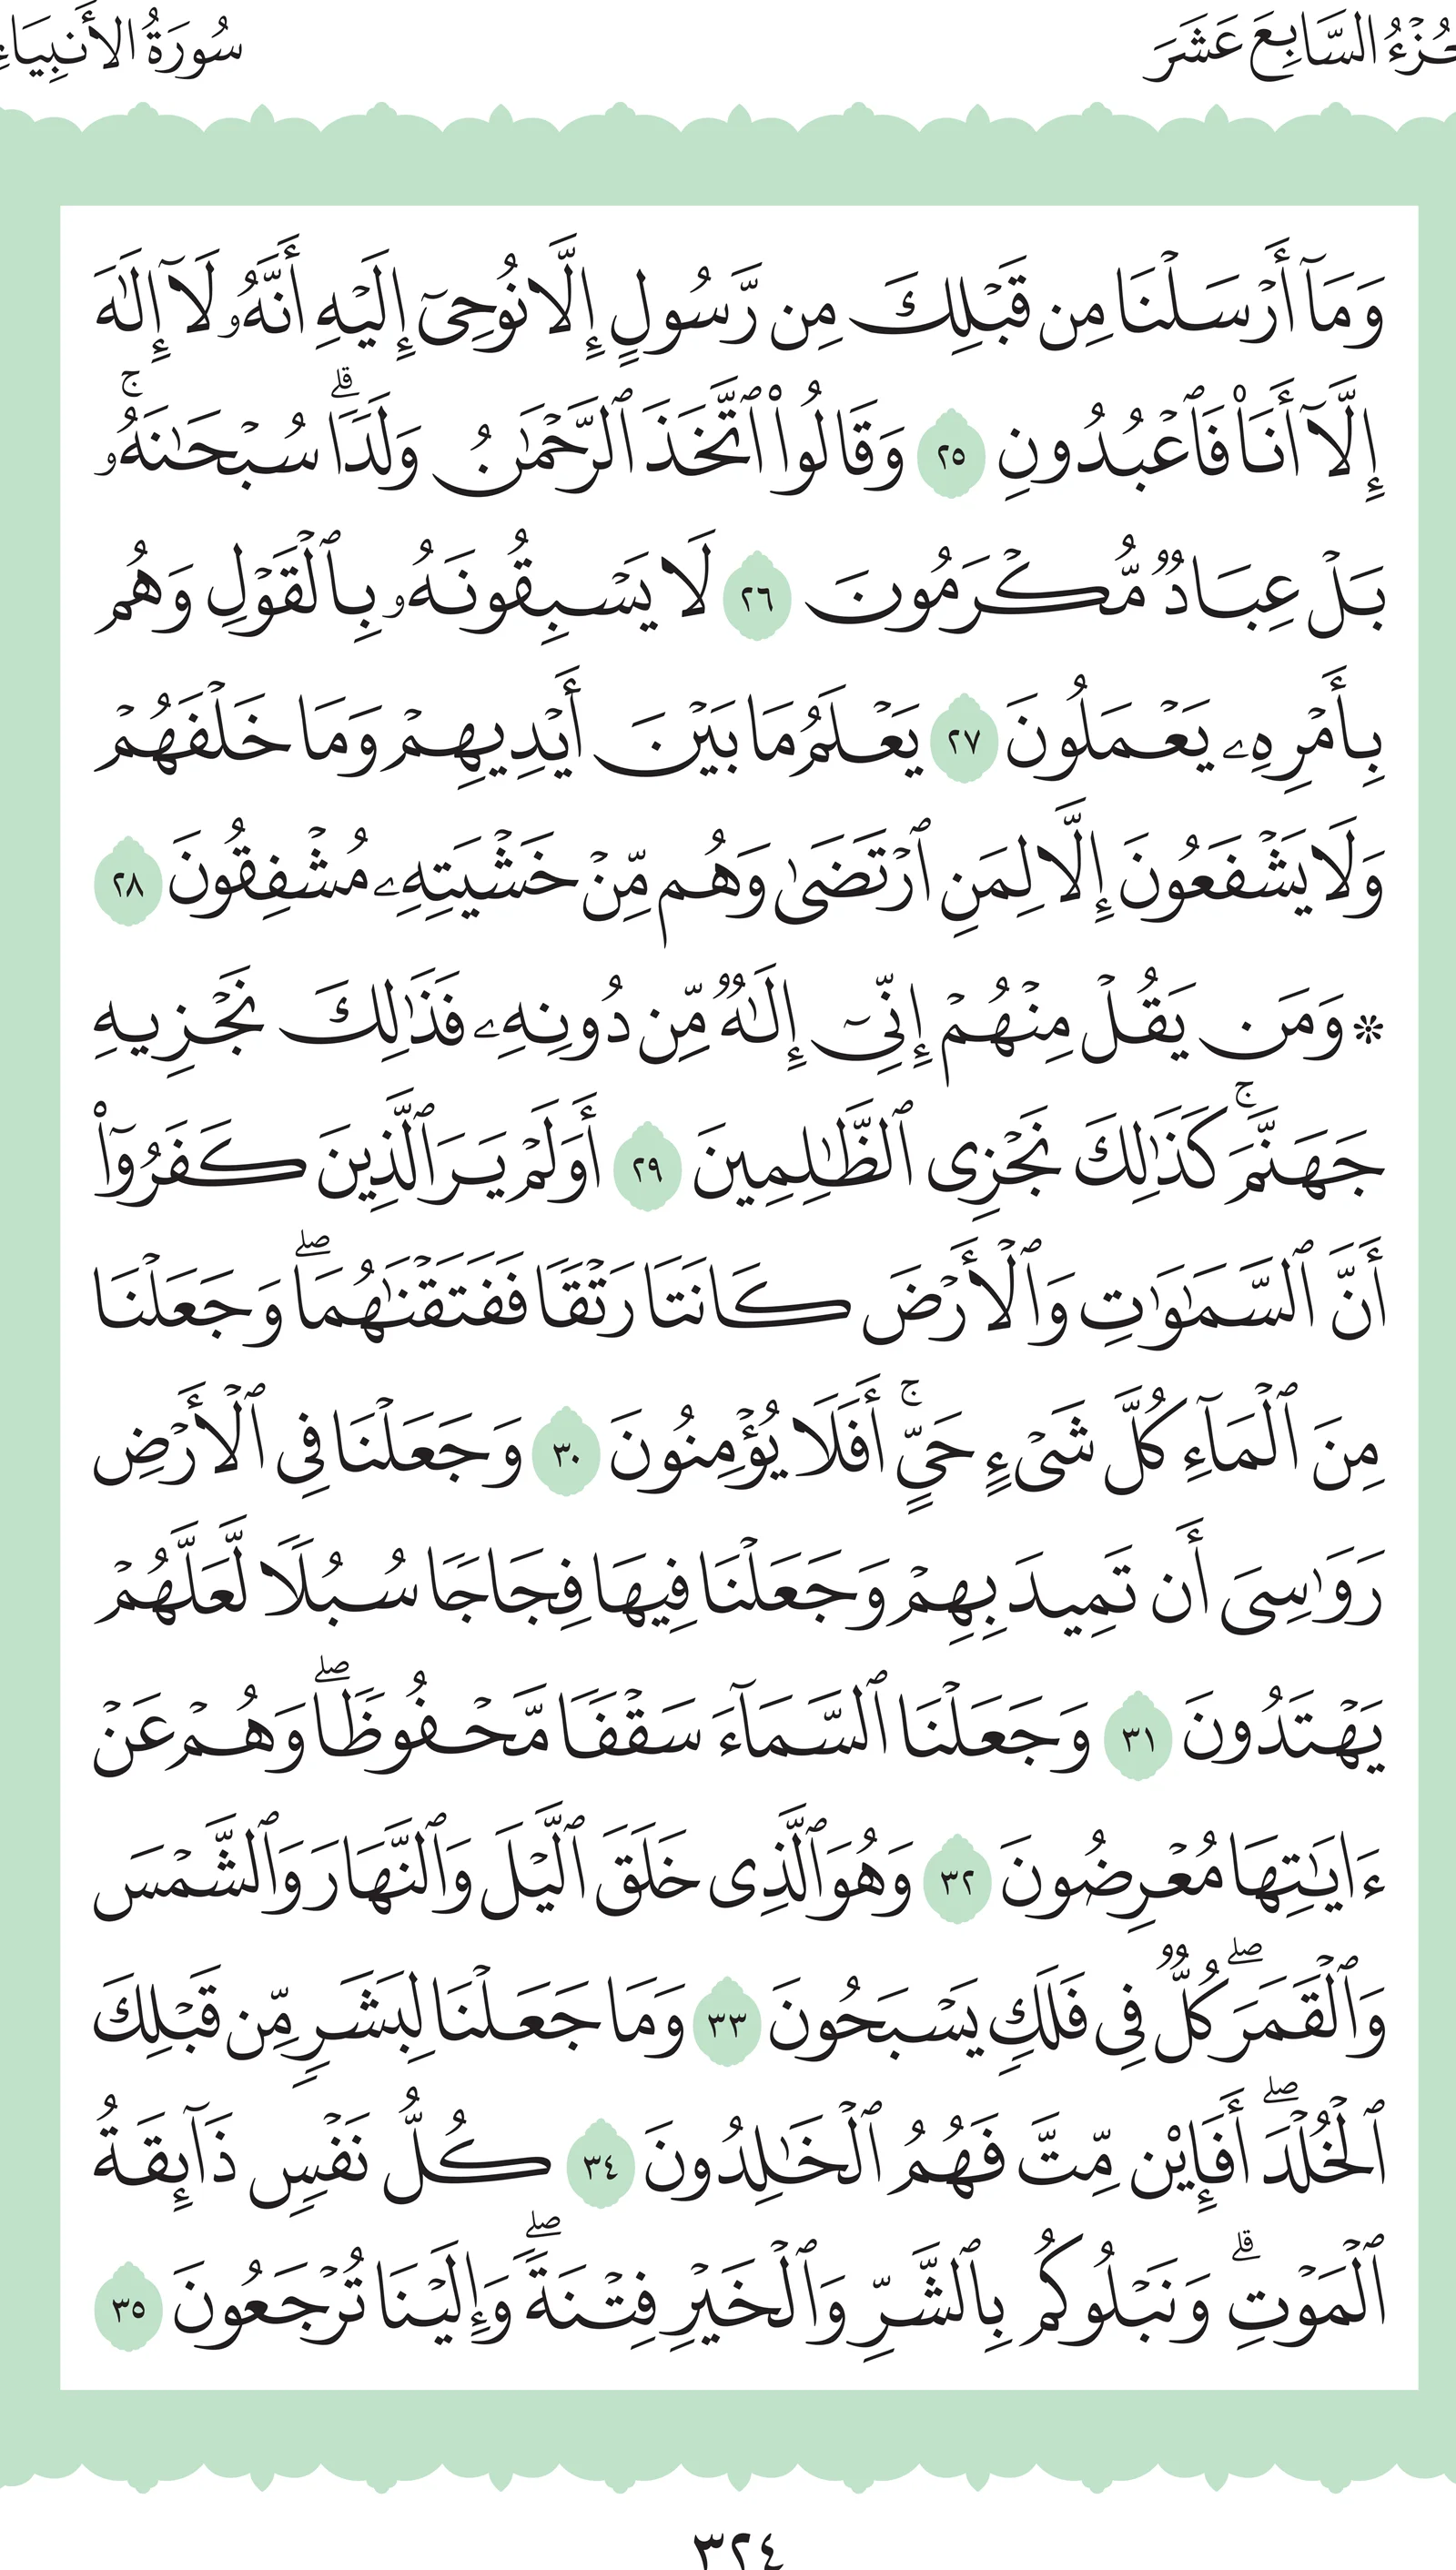 الجُزْءُ السَّابِعَ عَشَرَ
سُورَةُ الأَنبِيَاءِ
وَمَآ أَرْسَلْنَا مِن قَبْلِكَ مِن رَّسُولٍ إِلَّا نُوحِىٓ إِلَيْهِ أَنَّهُۥ لَآ إِلَٰهَ
إِلَّآ أَنَا۠ فَٱعْبُدُونِ ٢٥ وَقَالُوا۟ ٱتَّخَذَ ٱلرَّحْمَٰنُ وَلَدًا ۗ سُبْحَٰنَهُۥ ۚ
بَلْ عِبَادٌ مُّكْرَمُونَ ٢٦ لَا يَسْبِقُونَهُۥ بِٱلْقَوْلِ وَهُم
بِأَمْرِهِۦ يَعْمَلُونَ ٢٧ يَعْلَمُ مَا بَيْنَ أَيْدِيهِمْ وَمَا خَلْفَهُمْ
وَلَا يَشْفَعُونَ إِلَّا لِمَنِ ٱرْتَضَىٰ وَهُم مِّنْ خَشْيَتِهِۦ مُشْفِقُونَ ٢٨
۞ وَمَن يَقُلْ مِنْهُمْ إِنِّىٓ إِلَٰهٌ مِّن دُونِهِۦ فَذَٰلِكَ نَجْزِيهِ
جَهَنَّمَ ۚ كَذَٰلِكَ نَجْزِى ٱلظَّٰلِمِينَ ٢٩ أَوَلَمْ يَرَ ٱلَّذِينَ كَفَرُوٓا۟
أَنَّ ٱلسَّمَٰوَٰتِ وَٱلْأَرْضَ كَانَتَا رَتْقًا فَفَتَقْنَٰهُمَا ۖ وَجَعَلْنَا
مِنَ ٱلْمَآءِ كُلَّ شَىْءٍ حَىٍّ ۚ أَفَلَا يُؤْمِنُونَ ٣٠ وَجَعَلْنَا فِى ٱلْأَرْضِ
رَوَٰسِىَ أَن تَمِيدَ بِهِمْ وَجَعَلْنَا فِيهَا فِجَاجًا سُبُلًا لَّعَلَّهُمْ
يَهْتَدُونَ ٣١ وَجَعَلْنَا ٱلسَّمَآءَ سَقْفًا مَّحْفُوظًا ۖ وَهُمْ عَنْ
ءَايَٰتِهَا مُعْرِضُونَ ٣٢ وَهُوَ ٱلَّذِى خَلَقَ ٱلَّيْلَ وَٱلنَّهَارَ وَٱلشَّمْسَ
وَٱلْقَمَرَ ۖ كُلٌّ فِى فَلَكٍ يَسْبَحُونَ ٣٣ وَمَا جَعَلْنَا لِبَشَرٍ مِّن قَبْلِكَ
ٱلْخُلْدَ ۖ أَفَإِي۟ن مِّتَّ فَهُمُ ٱلْخَٰلِدُونَ ٣٤ كُلُّ نَفْسٍ ذَآئِقَةُ
ٱلْمَوْتِ ۗ وَنَبْلُوكُم بِٱلشَّرِّ وَٱلْخَيْرِ فِتْنَةً ۖ وَإِلَيْنَا تُرْجَعُونَ ٣٥
٣٢٤